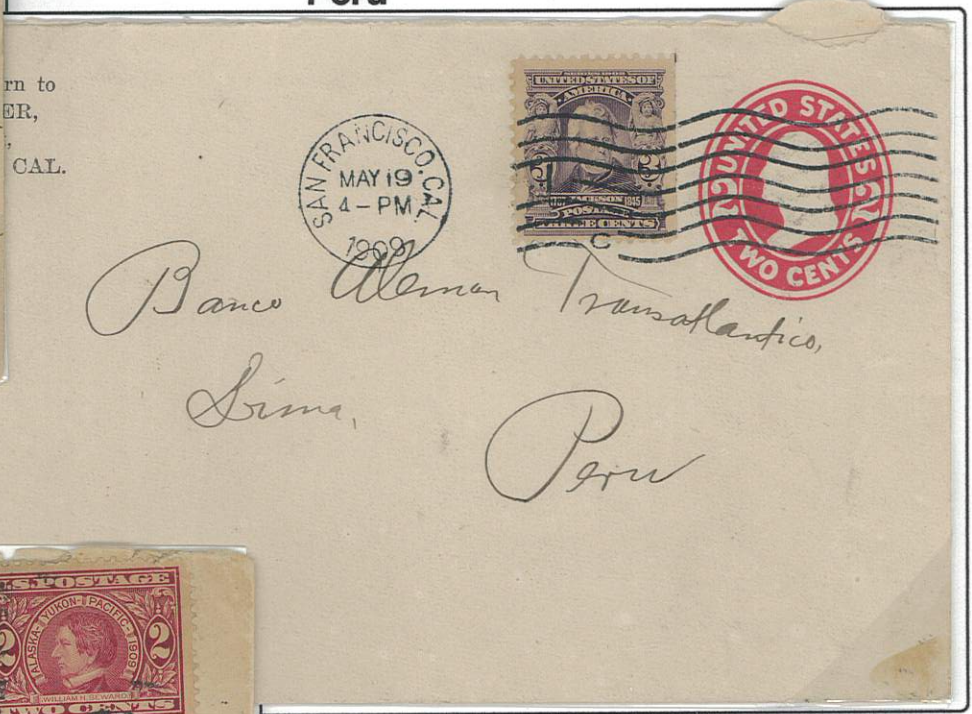 Peru
rn to
ER,
CAL.
SAN FRANCISCO. CAL.
MAY 19
4-PM
1909
C
UNITED STATES OF
AMERICA
3 3
1845
POSTAGE
THREE CENTS
UNITED STATES
2 2
TWO CENTS
Banco Aleman Transatlantico,
Lima,
Peru
U.S. POSTAGE
ALASKA-YUKON-PACIFIC-1909
2 2
WILLIAM H. SEWARD
TWO CENTS